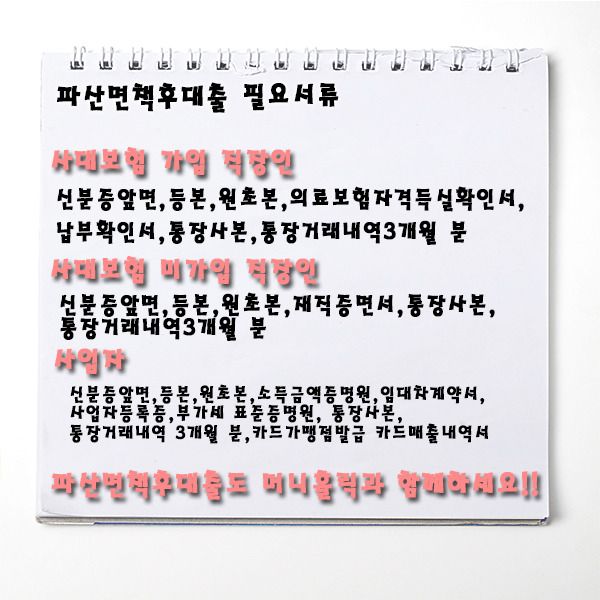 파산면책후대출 필요서류
사대보험 가입 직장인
신분증앞면,등본,원초본,의료보험자격득실확인서,
납부확인서,통장사본,통장거래내역3개월 분
사대보험 미가입 직장인
신분증앞면,등본,원초본,재직증면서,통장사본,
통장거래내역3개월 분
사업자
신분증앞면,등본,원초본,소득금액증명원,임대차계약서,
사업자등록증,부가세 표준증명원, 통장사본,
통장거래내역 3개월 분,카드가맹점발급 카드매출내역서
파산면책후대출도 머니홀릭과 함께하세요!!